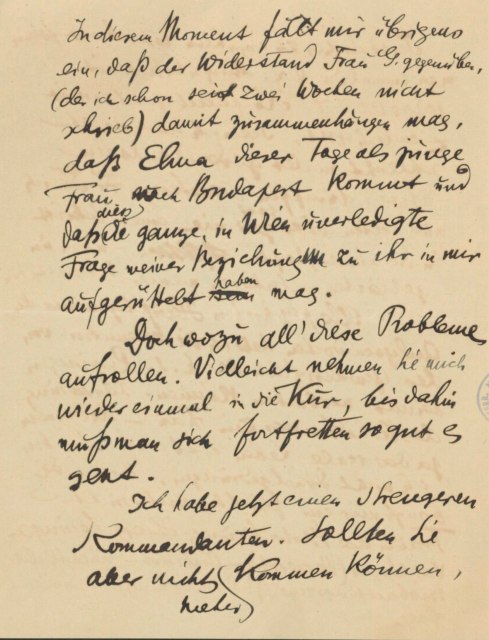 In diesem Moment fällt mir übrigens
ein, daß der Widerstand Frau G. gegenüber,
(der ich schon seit zwei Wochen nicht
schrieb) damit zusammenhängen mag,
daß Elma dieser Tage als junge
Frau nach Budapest kommt und
daß dies die ganze, in Wien unerledigte
Frage meiner Beziehung zu ihr in mir
aufgerüttelt haben mag.
Doch wozu all' diese Probleme
aufrollen. Vielleicht nehmen Sie mich
wieder einmal in die Kur, bis dahin
muß man sich fortfretten so gut es
geht.
Ich habe jetzt einen strengeren
Kommandanten. Sollten Sie
aber nicht kommen können,